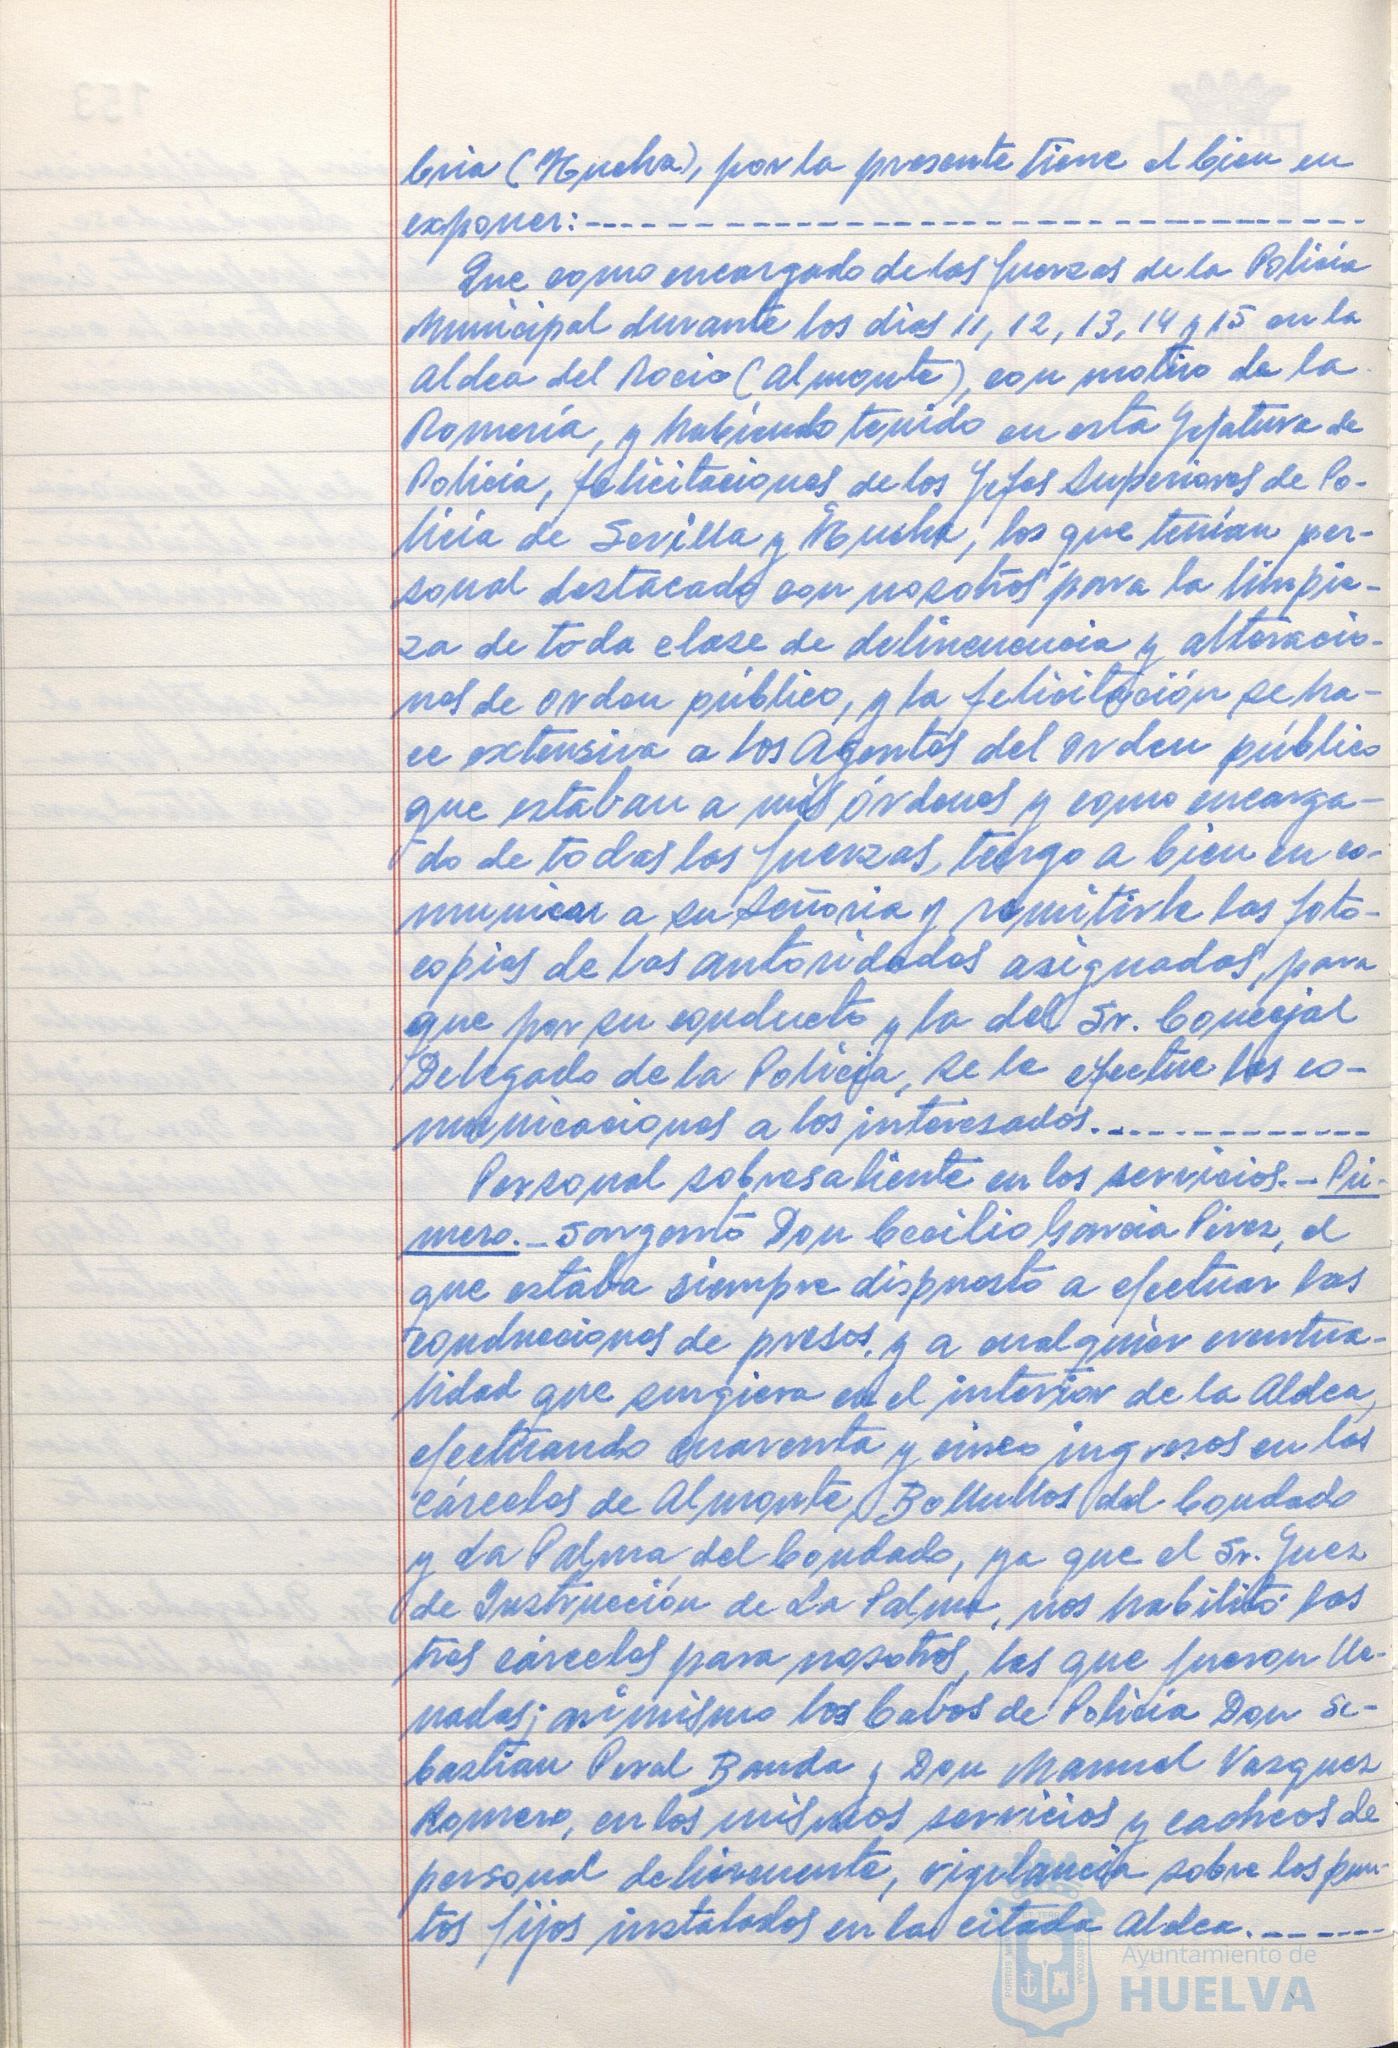 bria (Huelva), por la presente tiene el bien en
exponer:
Que como encargado de las fuerzas de la Policía
Municipal durante los dias 11, 12, 13, 14 y 15 en la
Aldea del Rocio (Almonte), con motivo de la
Romería, y habiendo tenido en esta Jefatura de
Policia, felicitaciones de los Jefes Superiores de Po-
licia de Sevilla y Huelva, los que tenían per-
sonal destacado con nosotros para la limpie-
za de toda clase de delincuencia y alteracio-
nes de orden público, y la felicitación se ha-
ce extensiva a los Agentes del orden público
que estaban a mis órdenes y como encarga-
do de todas las fuerzas, tengo a bien en co-
municar a su Señoria y remitirle las foto-
copias de las autoridades asignadas, para
que por su conducto y la del Sr. Concejal
Delegado de la Policia, se le efectue las co-
municaciones a los interesados.
Personal sobresaliente en los servicios.- Pri-
mero.- Sargento Don Cecilio Garcia Pérez, el
que estaba siempre dispuesto a efectuar las
conducciones de presos, y a cualquier eventua-
lidad que surgiera en el interior de la Aldea,
efectuando cuarenta y cinco ingresos en las
cárceles de Almonte, Bollullos del Condado
y La Palma del Condado, ya que el Sr. Juez
de Instrucción de La Palma, nos habilitó las
tres cárceles para nosotros, las que fueron lle-
nadas; asimismo los Cabos de Policía Don Se-
bastian Peral Banda y Don Manuel Vazquez
Romero, en los mismos servicios y cacheos de
personal delincuente, vigilancia sobre los pun-
tos fijos instalados en la citada Aldea.
Ayuntamiento de
HUELVA